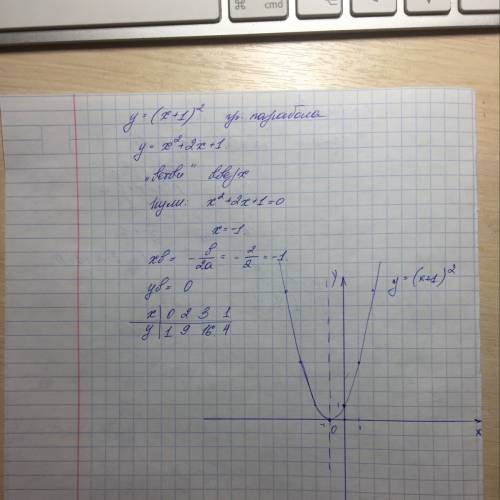 cmd
y = (x+1)² гр. парабола
y = x²+2x+1
"ветви" вверх
Нули: x²+2x+1=0
x=-1
xв = -в/2a = -2/2 = -1
yв = 0
x | 0 2 3 1
y | 1 9 16 4
y y = (x+1)²
1
-1 0 1 x